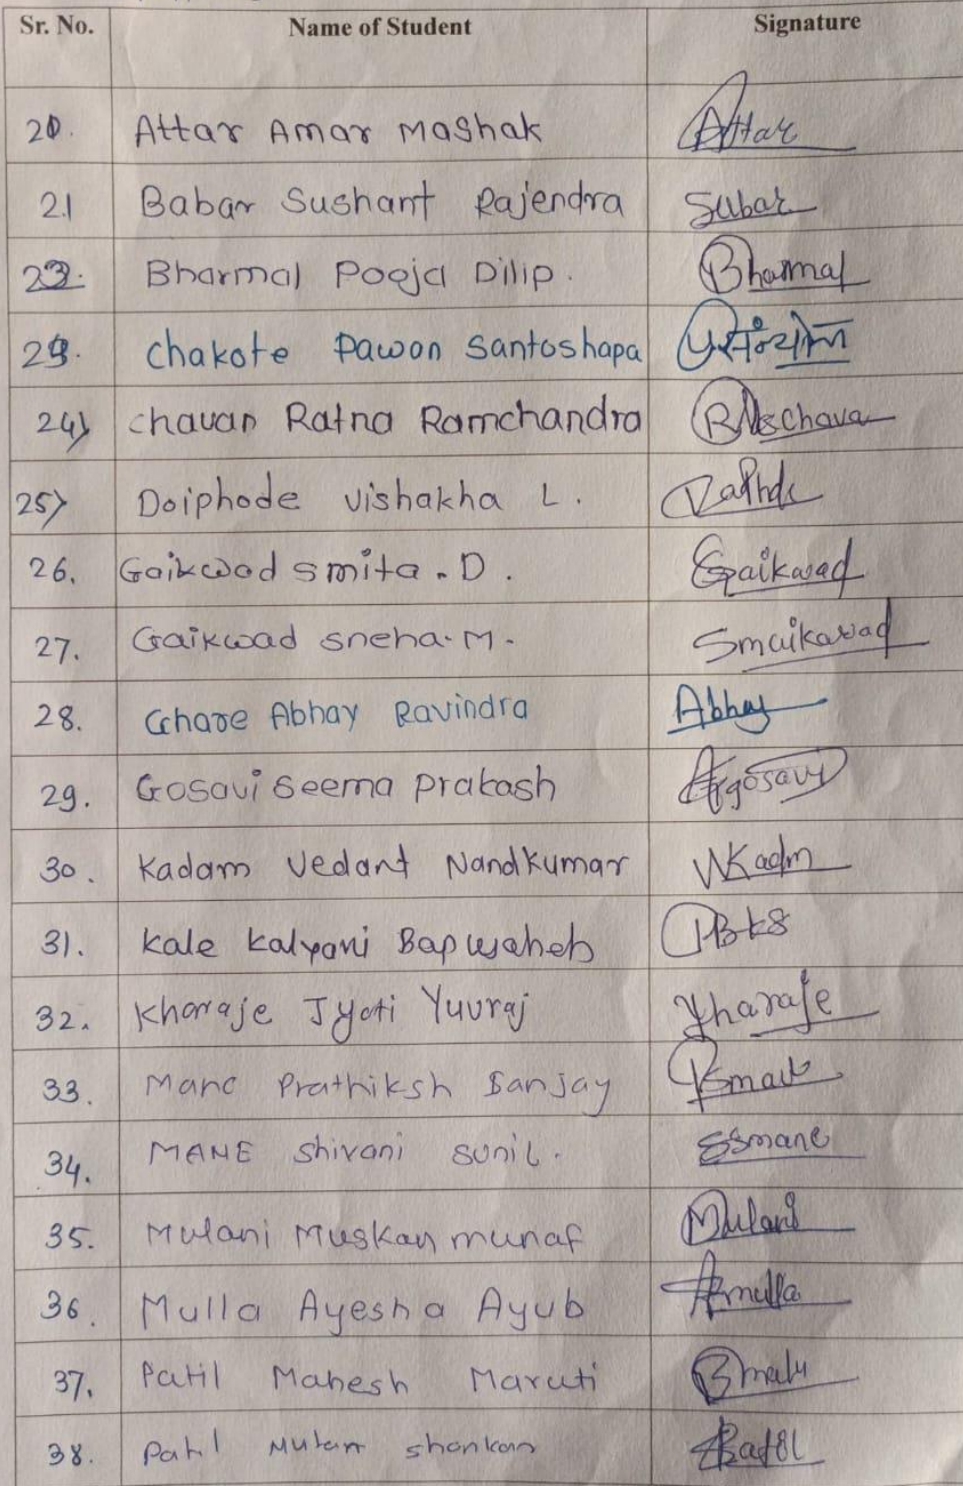 Sr. No. Name of Student Signature
20. Attar Amar Mashak Attar
21 Babar Sushant Rajendra Sabar
22. Bharmal Pooja Dilip. Bharmal
23. Chakote Pawan Santoshapa
24) Chavan Ratna Ramchandra
25) Doiphode Vishakha L.
26. Gaikwad Smita . D . Gaikwad
27. Gaikwad Sneha. M. Smaikawad
28. Ghare Abhay Ravindra Abhay
29. Gosavi Seema Prakash
30. Kadam Vedant Nandkumar VKadm
31. Kale Kalyani Bapusaheb
32. Kharaje Jyoti Yuvraj Jharaje
33. Mane Prathiksh Sanjay
34. MANE Shivani Sunil. SSmane
35. Mulani Muskan munaf Mulani
36. Mulla Ayesha Ayub Amulla
37. Patil Mahesh Maruti
38. Patil Shankar